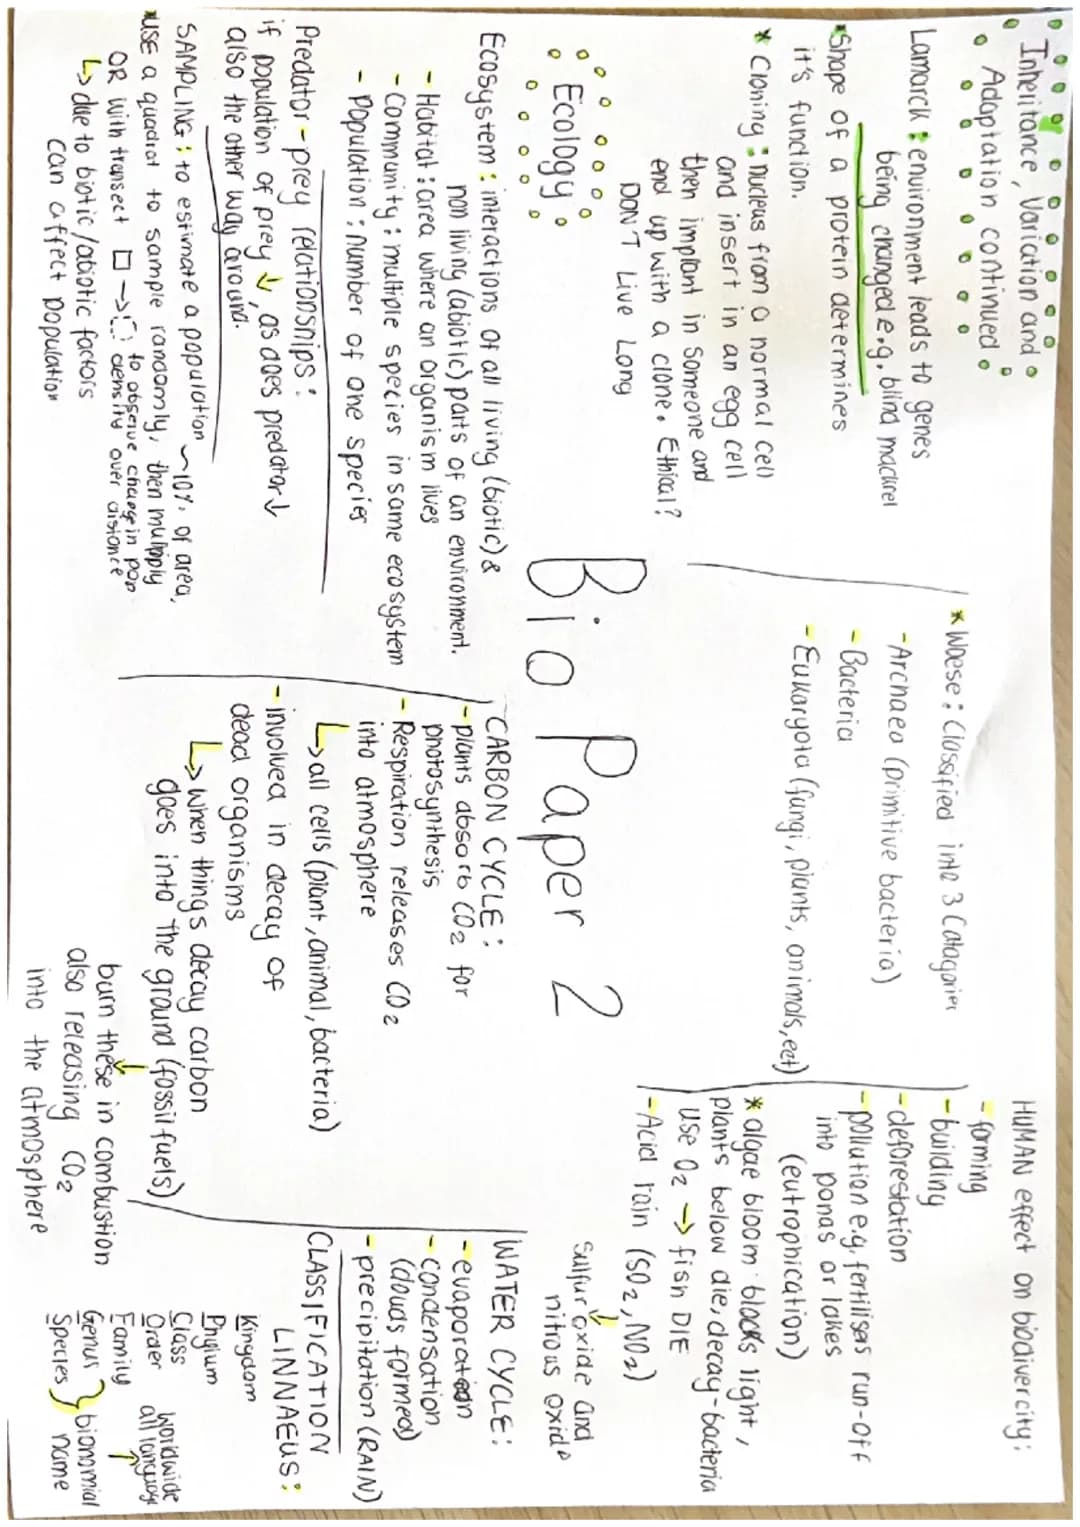 Inheritance, Variation and
Adaptation continued
Lamarck: environment leads to genes
being changed e.g. blind mackrel
*Shape of a protein determines
it's function.
* Cloning: nucleus from a normal cell
and insert in an egg cell
then implant in someone and
end up with a clone. Ethical?
DON'T Live Long
Ecology
Ecosystem: interactions of all living (biotic) &
non living (abiotic) parts of an environment.
- Habitat: area where an organism lives
- Community: multiple species in same ecosystem
- Population: number of one species
Predator-prey relationships:
if population of prey ↓, as does predator↓
also the other way around.
SAMPLING: to estimate a population ~10% of area,
*USE a quadrat to sample randomly, then multiply
OR with transect □ → to observe change in pop
density over distance
↳ due to biotic/abiotic factors
can affect population
Bio Paper 2
* Woese: Classified into 3 Catagories
- Archaea (primitive bacteria)
- Bacteria
- Eukaryota (fungi, plants, animals, ect)
CARBON CYCLE:
- plants absorb CO2 for
photosynthesis
- Respiration releases CO2
into atmosphere
↳ all cells (plant, animal, bacteria)
- involved in decay of
dead organisms
↳ when things decay carbon
goes into the ground (fossil fuels)
↓
burn these in combustion
also releasing CO2
into the atmosphere
HUMAN effect on biodivercity:
- farming
- building
- deforestation
- pollution e.g. fertiliser run-off
into ponds or lakes
(eutrophication)
* algae bloom blocks light,
plants below die, decay-bacteria
use O2 → fish DIE
- Acid rain (SO2, NO2)
↓
sulfur oxide and
nitrous oxide
WATER CYCLE:
- evaporation
- condensation
(clouds formed)
- precipitation (RAIN)
CLASSIFICATION
LINNAEUS:
Kingdom
Phylum
Class
Order
Family
Genus
Species
worldwide
all language
↑
bionomial
name